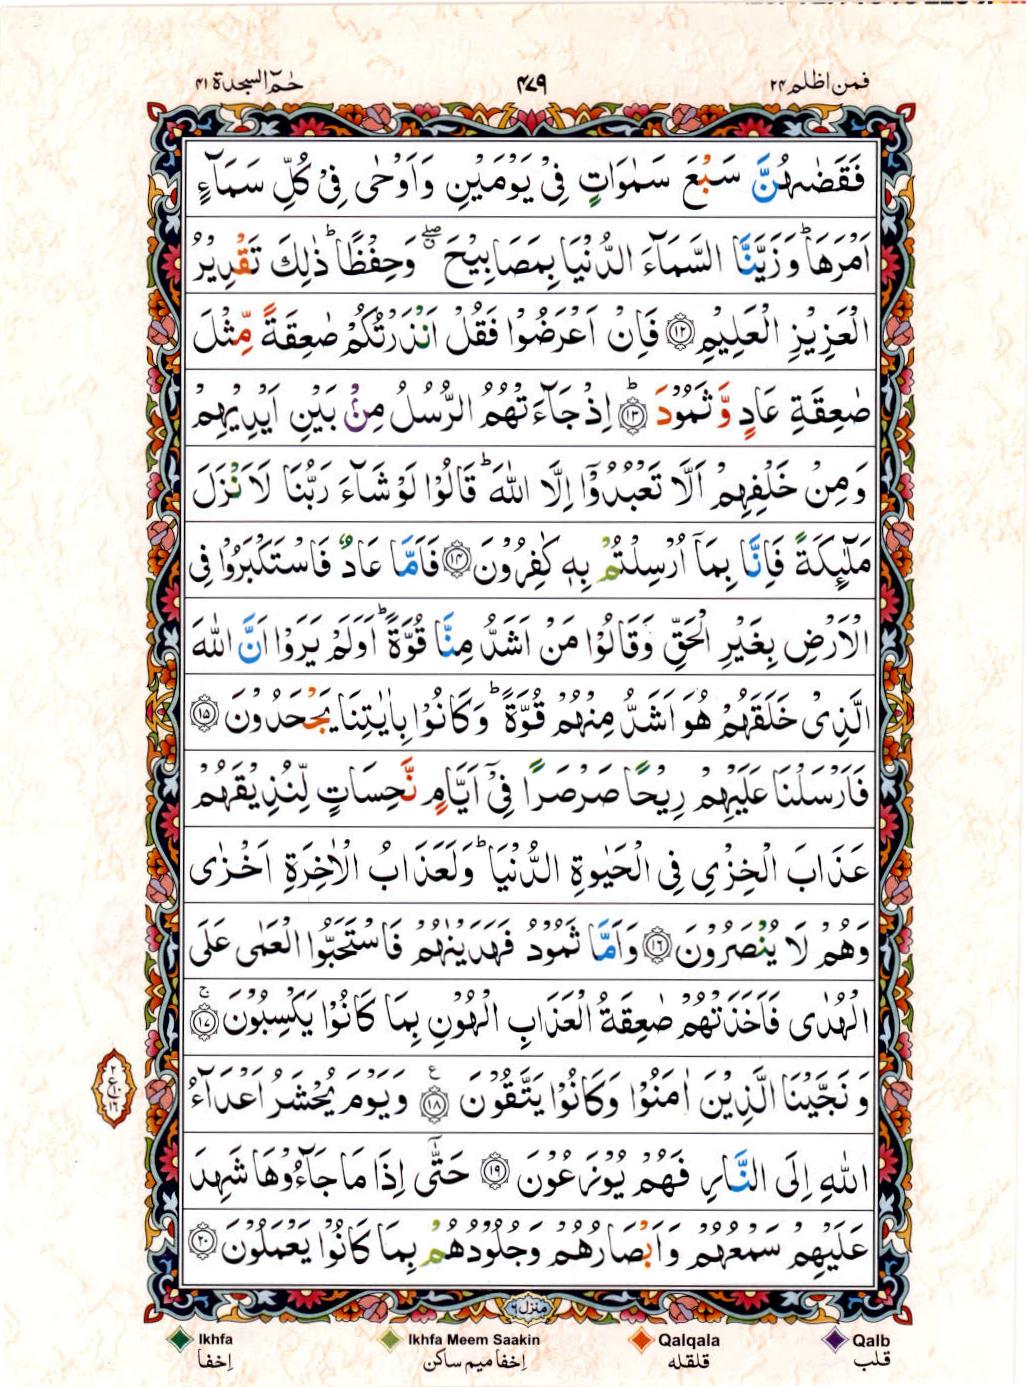 فمن اظلم ۲۴ ۴۷۹ حٰم السجدة ۴۱
فَقَضٰىهُنَّ سَبْعَ سَمٰوَاتٍ فِیْ یَوْمَیْنِ وَاَوْحٰی فِیْ كُلِّ سَمَآءٍ
اَمْرَهَا ؕ وَزَیَّنَّا السَّمَآءَ الدُّنْیَا بِمَصَابِیْحَ ۖۗ وَحِفْظًا ؕ ذٰلِكَ تَقْدِیْرُ
الْعَزِیْزِ الْعَلِیْمِ ﴿۱۲﴾ فَاِنْ اَعْرَضُوْا فَقُلْ اَنْذَرْتُكُمْ صٰعِقَةً مِّثْلَ
صٰعِقَةِ عَادٍ وَّ ثَمُوْدَ ﴿۱۳﴾ؕ اِذْ جَآءَتْهُمُ الرُّسُلُ مِنْۢ بَیْنِ اَیْدِیْهِمْ
وَمِنْ خَلْفِهِمْ اَلَّا تَعْبُدُوْۤا اِلَّا اللّٰهَ ؕ قَالُوْا لَوْ شَآءَ رَبُّنَا لَاَنْزَلَ
مَلٰٓىِٕكَةً فَاِنَّا بِمَاۤ اُرْسِلْتُمْ بِهٖ كٰفِرُوْنَ ﴿۱۴﴾ فَاَمَّا عَادٌ فَاسْتَكْبَرُوْا فِی
الْاَرْضِ بِغَیْرِ الْحَقِّ وَقَالُوْا مَنْ اَشَدُّ مِنَّا قُوَّةً ؕ اَوَلَمْ یَرَوْا اَنَّ اللّٰهَ
الَّذِیْ خَلَقَهُمْ هُوَ اَشَدُّ مِنْهُمْ قُوَّةً ؕ وَكَانُوْا بِاٰیٰتِنَا یَجْحَدُوْنَ ﴿۱۵﴾
فَاَرْسَلْنَا عَلَیْهِمْ رِیْحًا صَرْصَرًا فِیْۤ اَیَّامٍ نَّحِسَاتٍ لِّنُذِیْقَهُمْ
عَذَابَ الْخِزْیِ فِی الْحَیٰوةِ الدُّنْیَا ؕ وَلَعَذَابُ الْاٰخِرَةِ اَخْزٰی
وَهُمْ لَا یُنْصَرُوْنَ ﴿۱۶﴾ وَاَمَّا ثَمُوْدُ فَهَدَیْنٰهُمْ فَاسْتَحَبُّوا الْعَمٰی عَلَی
الْهُدٰی فَاَخَذَتْهُمْ صٰعِقَةُ الْعَذَابِ الْهُوْنِ بِمَا كَانُوْا یَكْسِبُوْنَ ﴿۱۷﴾ۚ
وَنَجَّیْنَا الَّذِیْنَ اٰمَنُوْا وَكَانُوْا یَتَّقُوْنَ ﴿۱۸﴾ع وَیَوْمَ یُحْشَرُ اَعْدَآءُ
اللّٰهِ اِلَی النَّارِ فَهُمْ یُوْزَعُوْنَ ﴿۱۹﴾ حَتّٰۤی اِذَا مَا جَآءُوْهَا شَهِدَ
عَلَیْهِمْ سَمْعُهُمْ وَاَبْصَارُهُمْ وَجُلُوْدُهُمْ بِمَا كَانُوْا یَعْمَلُوْنَ ﴿۲۰﴾
۲
ع۱۰
۱۶
منزل ۶
Ikhfa Ikhfa Meem Saakin Qalqala Qalb
إخفا إخفا میم ساکن قلقله قلب